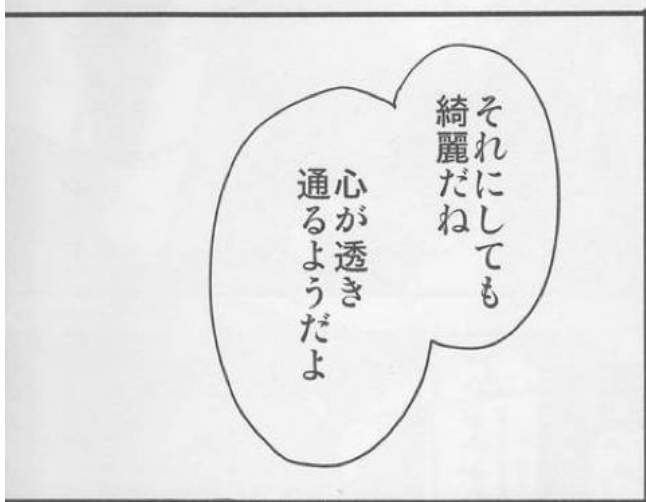 それにしても
綺麗だね
心が透き
通るようだよ